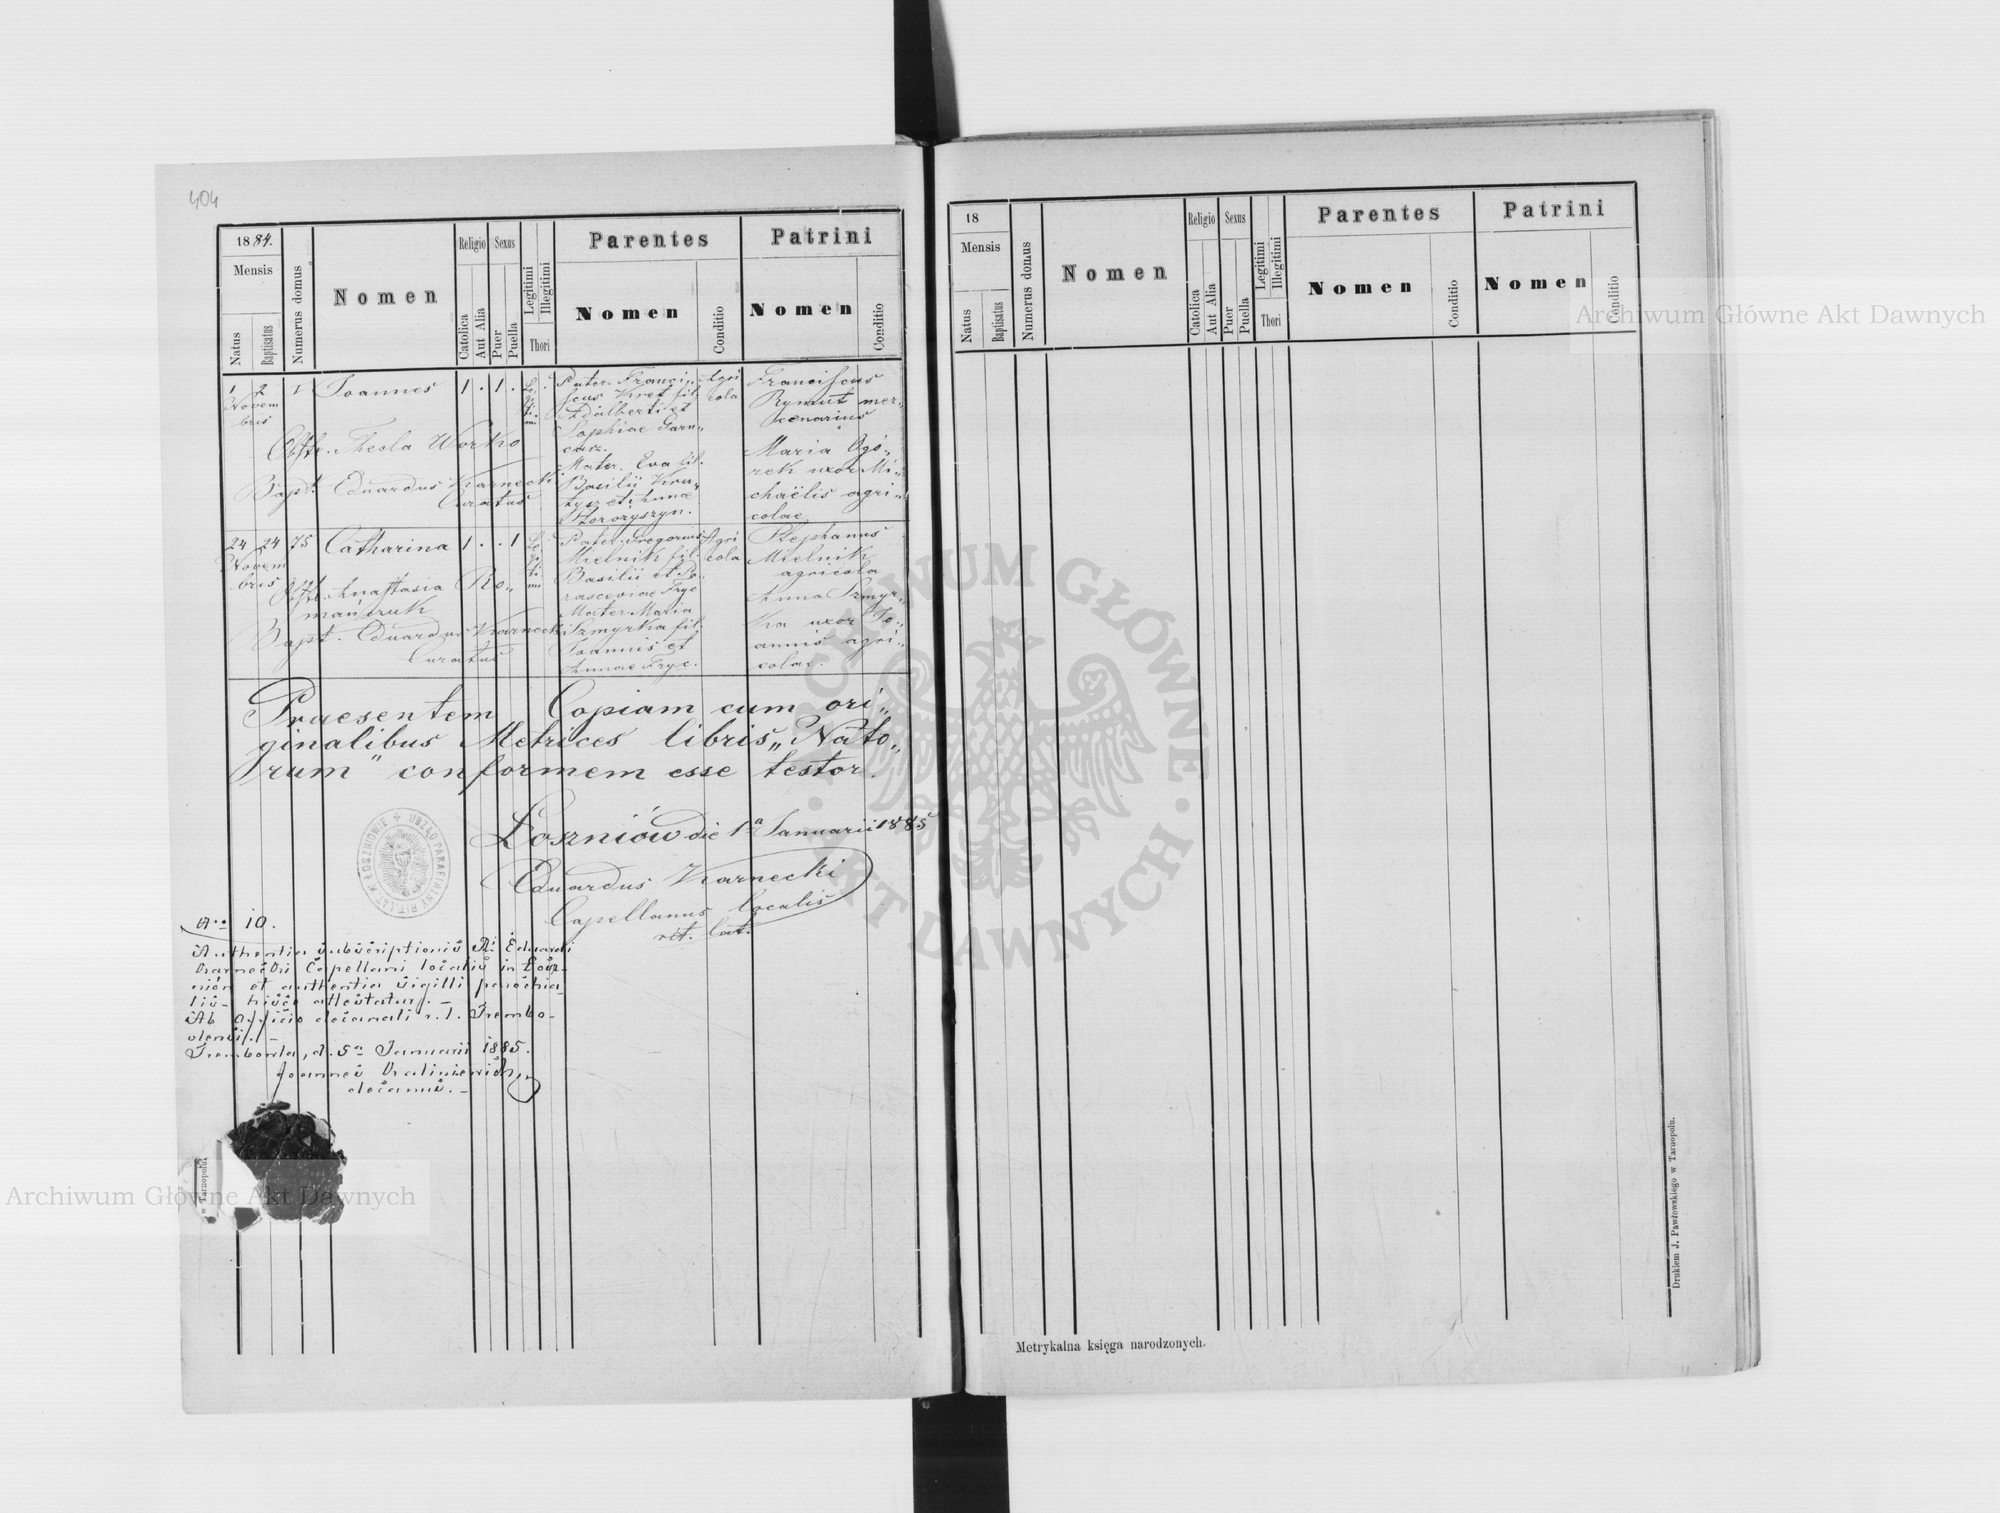 404
1884.
Mensis
Natus
Baptisatus
Numerus domus
Nomen
Religio
Catolica
Aut Alia
Sexus
Puer
Puella
Legitimi
Illegitimi
Thori
Parentes
Nomen
Conditio
Patrini
Nomen
Conditio
1 2
Novem
bris
Joannes
1 . 1 .
Le
gi
ti
mi
Obst. Thecla Worko
Bapt. Eduardus Karnecki
Curatus
Pater. Franci„
scus Kret fil.
Adalberti et
Sophiae Garn„
carz.
Mater. Eva fil.
Basilii
et Annae
Agri
cola
Franciscus
Rymut mer„
cenarius
Maria Ogó„
rek uxor Mi„
chaëlis agri„
colae
24 24
Novem
bris
75
Catharina
1 . . 1
Le
gi
ti
mi
Obst. Anastasia Ro„
mańczuk
Bapt. Eduardus Karnecki
Curatus
Pater. Gregorius
Mielnik fil.
Basilii et Pa„
rasceviae Fryc
Mater Maria
Szmyrka fil.
Joannis et
Annae Fryc.
Agri
cola
Stephanus
Mielnik
agricola
Anna Szmyr„
ka uxor Jo„
annis agri„
colae.
Praesentem Copiam cum ori„
ginalibus Metrices libris „Nato„
rum" conformem esse testor.
Łoszniów die 1a Januarii 1885
Eduardus Karnecki
Capellanus localis
rit. lat.
URZĄD PARAFIALNY RIT. ŁAT. W ŁOSZNIOWIE
10.
Authentia subscriptionis R. Eduardi
Karnecki Capellani localis in Łosz-
niów et authentia sigilli parochia-
lis hisce attestatur. -
Ab officio decanali r. l. Trembo-
vlensi. -
Trembowla, d. 5a Januarii 1885.
Joannes Kaliniewicz
decanus. -
w Tarnopolu
18
Mensis
Natus
Baptisatus
Numerus domus
Nomen
Religio
Catolica
Aut Alia
Sexus
Puer
Puella
Legitimi
Illegitimi
Thori
Parentes
Nomen
Conditio
Patrini
Nomen
Conditio
Metrykalna księga narodzonych.
Drukiem J. Pawłowskiego w Tarnopolu.
Archiwum Główne Akt Dawnych
Archiwum Główne Akt Dawnych
ARCHIWUM GŁÓWNE AKT DAWNYCH